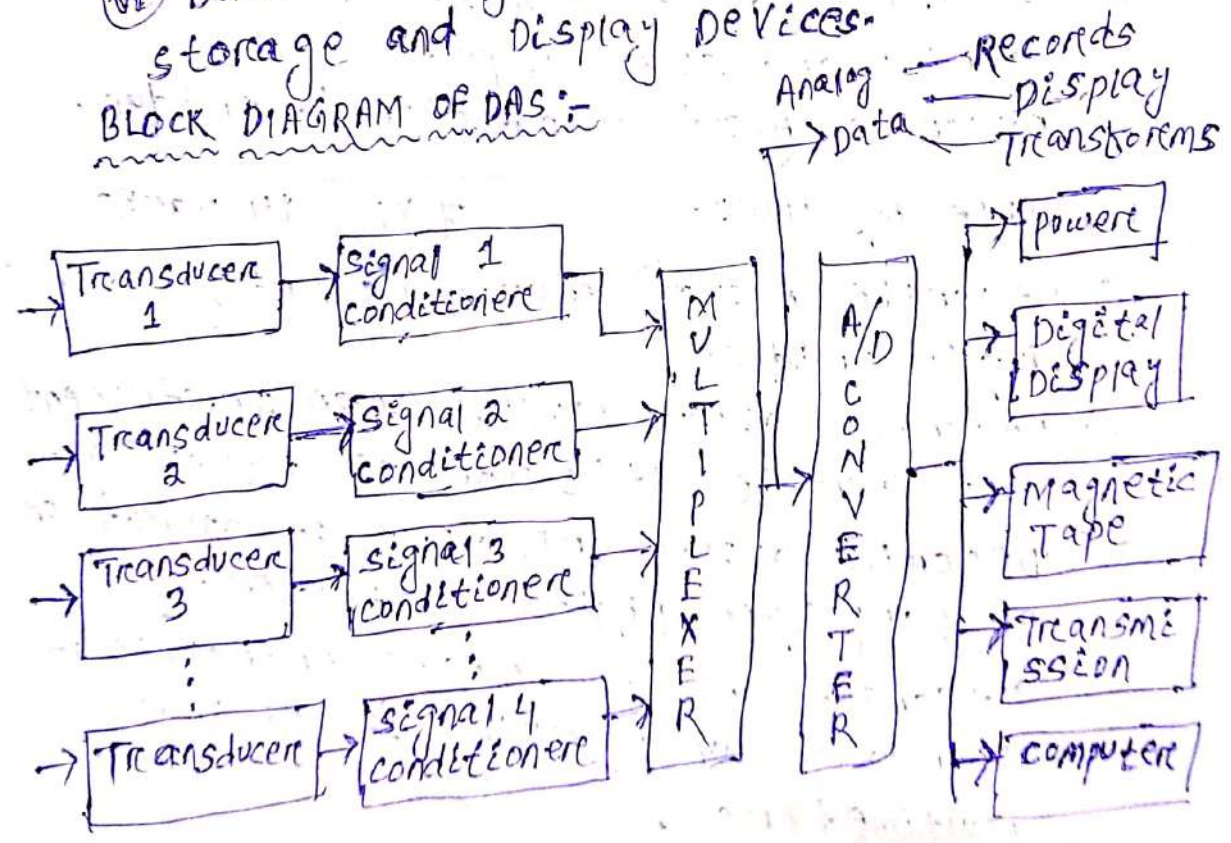 storage and Display Devices.
BLOCK DIAGRAM OF DAS :-
Analog
Data
Records
Display
Transforms
Transducer
1
Signal 1
conditioner
Transducer
2
Signal 2
conditioner
Transducer
3
Signal 3
conditioner
Transducer
Signal 4
conditioner
MULTIPLEXER
A/D CONVERTER
power
Digital
Display
Magnetic
Tape
Transmi
ssion
computer